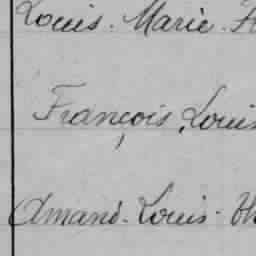 Louis. Marie.
François, Louis
Amand. Louis.